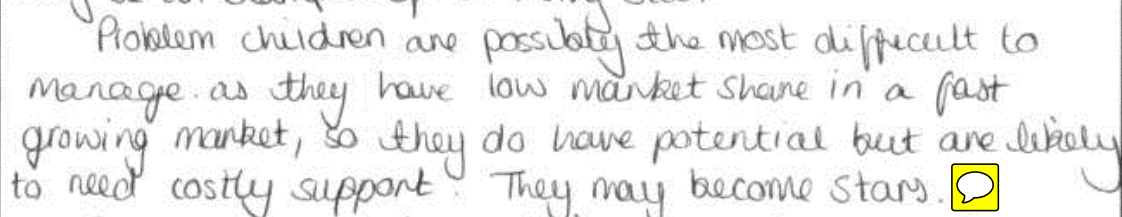 Problem children are possibley the most difficult to
manage. as they have low market share in a fast
growing market, so they do have potential but are likely
to need costly support. They may become stars.